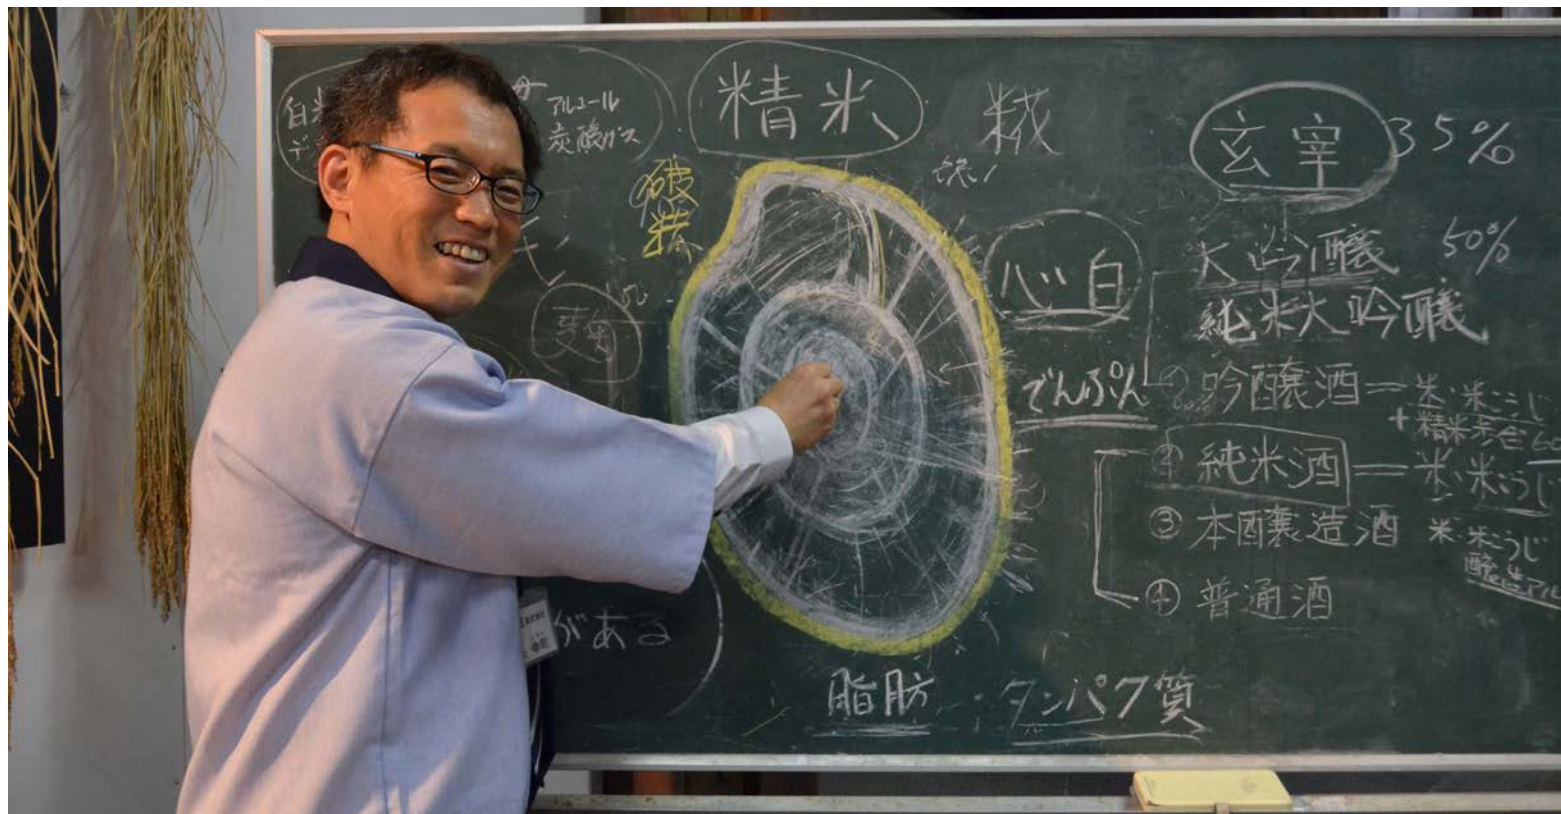 アルコール
炭酸ガス
精米
糀
玄宰 35%
破精
心白
大吟醸 50%
純米大吟醸
でんぷん
吟醸酒=米・米こうじ
+精米歩合60
② 純米酒=米・米こうじ
③ 本醸造酒 米・米こうじ
醸造アル
④ 普通酒
がある
脂肪 タンパク質